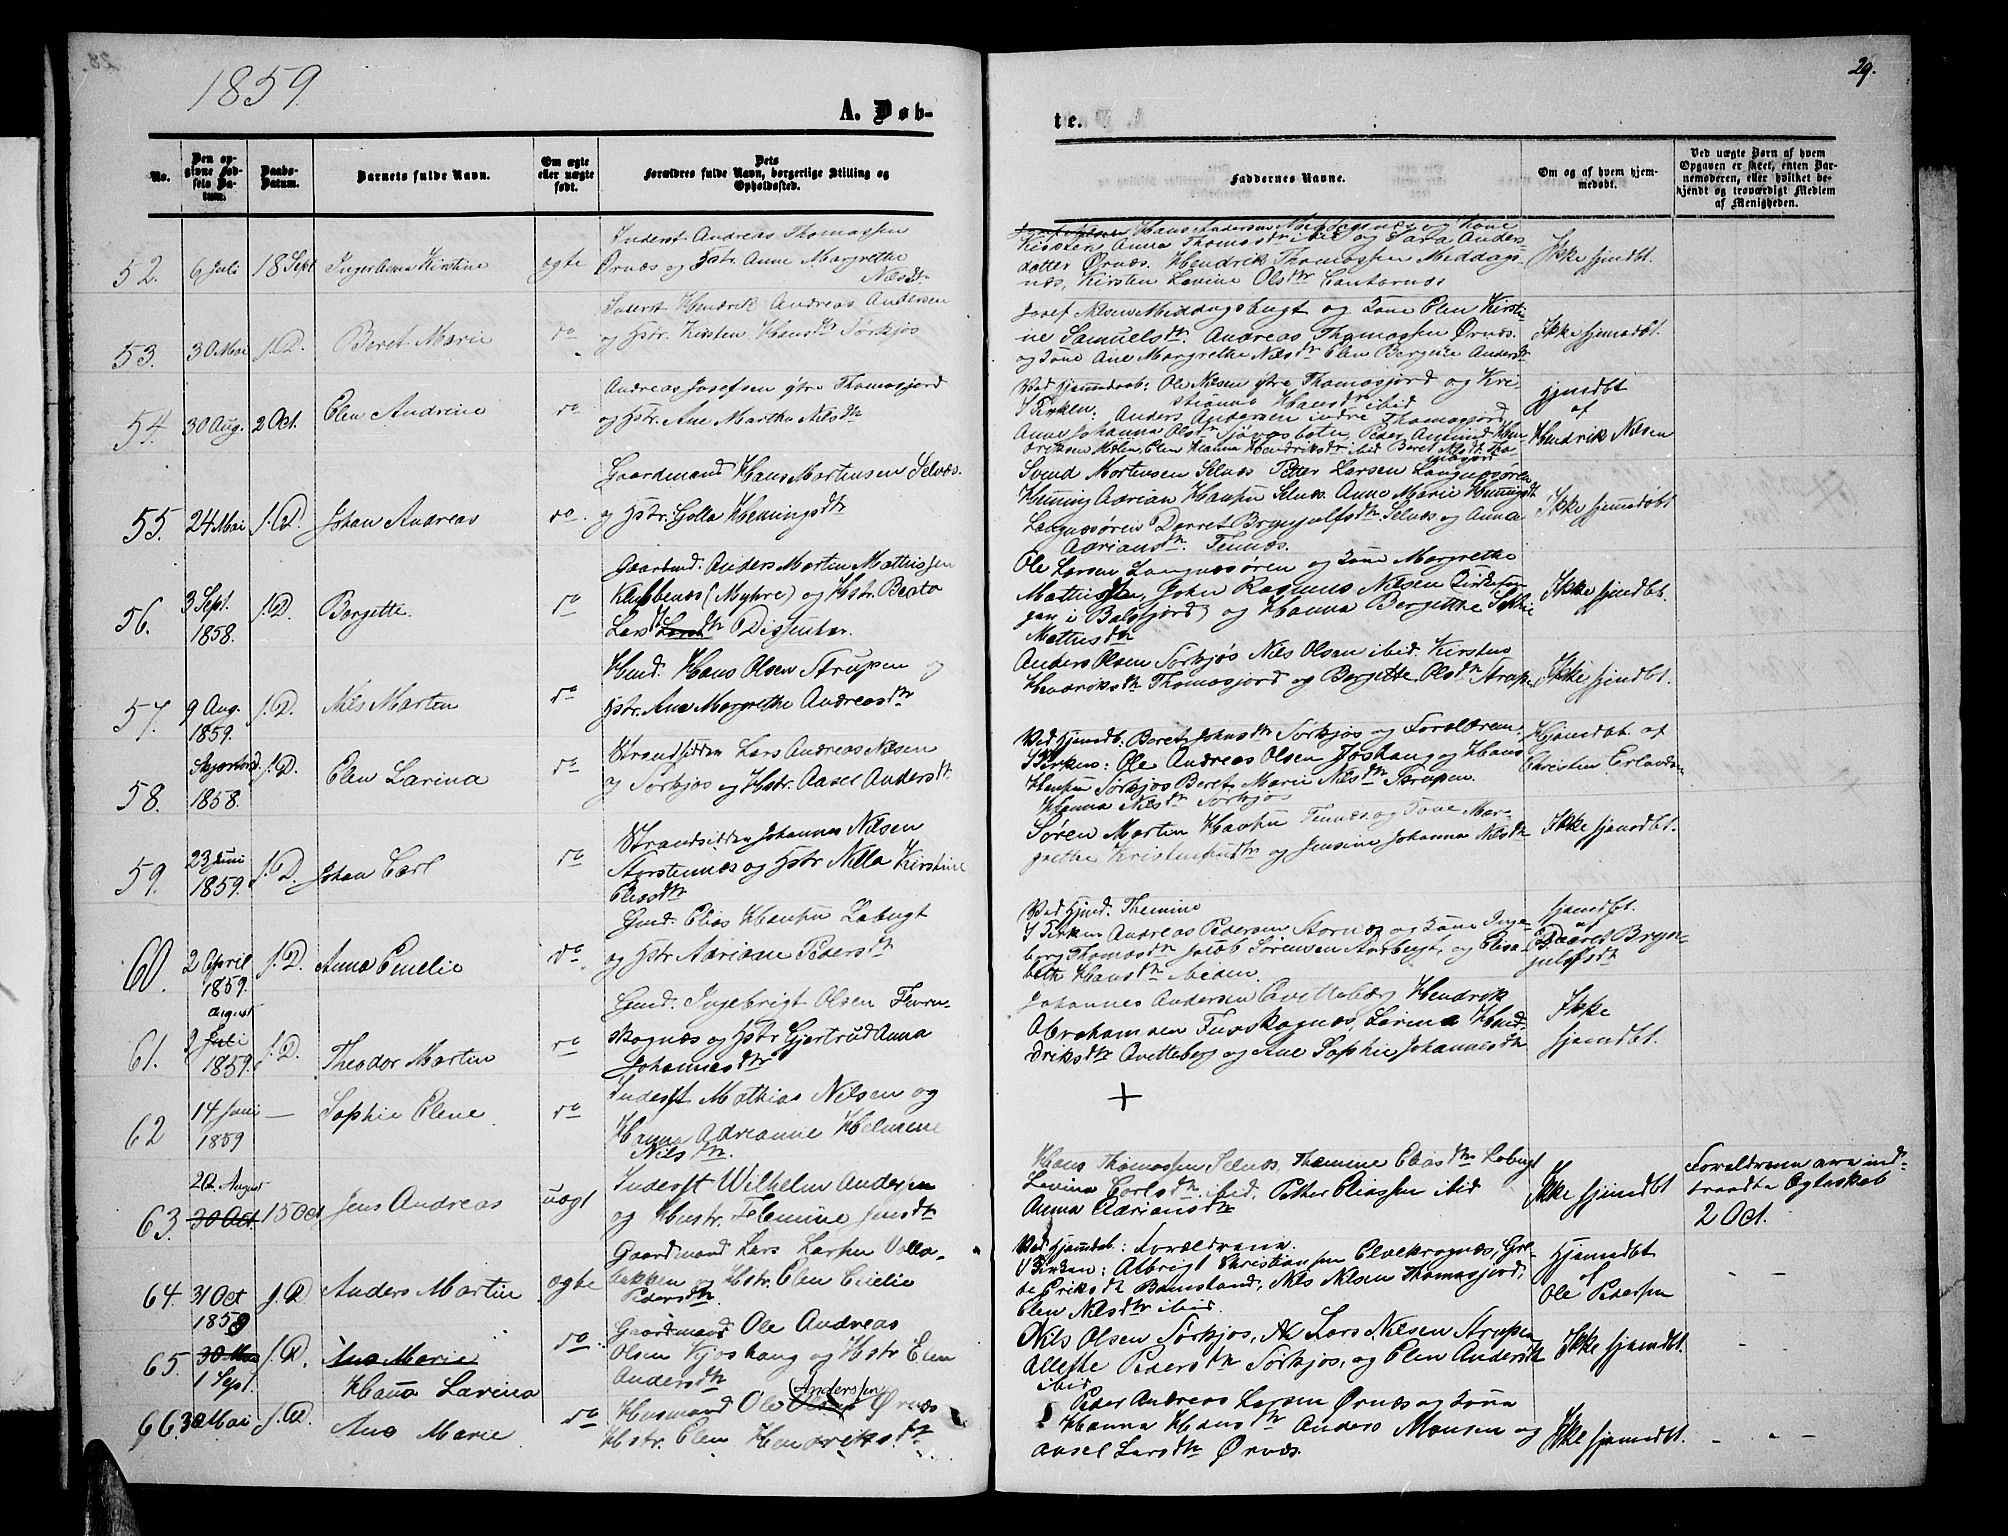 1859.
29.
A. Døb-
te.
No.
Den opgivne Fødsels Datum.
Daabs-Datum.
Barnets fulde Navn.
Om ægte eller uægte født.
Dets Forældres fulde Navn, borgerlige Stilling og Opholdssted.
Faddernes Navne.
Om og af hvem hjemmedøbt.
Ved uægte Børn af hvem Opgaven er skeet, enten Barnemoderen, eller hvilket bekjendt og troværdigt Medlem af Menigheden.
52. 6 Juli 18 Sept Inger Anna Kirstine ægte
Inderst Andreas Thomassen
Ørnæs og Hstr. Anne Margrethe
Nilsdtr.
Hans Andersen og Kone
Kirsten Anna Thomasdtr ibid og Sara Anders-
datter Ørnæs. Hendrik Thomassen Meddags-
næs, Kirsten Lavine Olsdtr Cantornæs
Ikke hjemdbt.
53. 30 Mai s.D. Beret Marie do
Inderst Hendrik Andreas Andersen
og Hstr. Kirsten Hansdtr Sørkjos
Josef Nilsen Meddagsbugt og Kone Elen Kirsti-
ne Samuelsdtr. Andreas Thomassen Ørnæs
og Kone Ane Margrethe Nilsdtr Elen Bergine Andersdtr
Ikke hjemdbt.
54. 30 Aug. 2 Oct. Elen Andrine do
Andreas Josefsen ytre Thomasjord
og Hstr. Ane Martha Nilsdtr
Ved Hjemdaab: Ole Nilsen ytre Thomasjord og Kri-
stianna Hansdtr ibid
I Kirken: Anders Andersen indre Thomasjord
Anne Johanna Olsdtr Sjøvasbotn, Peder Amund Hen-
driksen Elen Hanna Hendriksdtr ibid Beret Nilsdtr Tho-
masjord
hjemdbt
af
Hendrik Nilsen
55. 24 Mai s.D. Johan Andreas do.
Gaardmand Hans Mortensen Selnæs.
og Hstr. Golla Hemingsdtr
Svend Mortensen Selnæs Peter Larsen Langnæsøren
Heming Adrian Hansen Selnæs. Anne Marie Hemingsdtr
Langnæsøren Dorret Brynjulfsdtr Selnæs og Anna
Adriansdtr. Tennæs.
Ikke hjemdøbt
56. 3 Sept. 1858. s.D. Bergette do
Gaardmd. Anders Morten Mathissen
Klubbenæs (Myhre) og Hstr. Berta
Larsdtr Dissenter.
Ole Larsen Langnæsøren og Kone Margrethe
Mathisdtr, John Rasmus Nilsen
i Balsfjord og Hanna Bergitthe Sophie
Mathisdtr
Ikke hjemdbt.
57. 9 Aug. 1859. s.D. Nils Martin do
Hmd. Hans Olsen Strupen og
Hstr. Ane Margrethe Andreasdtr
Anders Olsen Sørkjos Nils Olsen ibid. Kirsten
Hendriksdtr Thomasjord og Bergitte Olsdtr Strupen
Ikke hjemdbt.
58. 1858. s.D. Elen Larina do
Strandsidder Lars Andreas Nilsen
Sørkjos og Hstr. Aasel Andersdtr.
Ved Hjemdb. Beret Johnsdtr Sørkjos og Forældrene.
I Kirken: Ole Andreas Olsen Joshaug og Hans
Hansen Sørkjos Beret Marie Nilsdtr Strupen.
Hanna Nilsdtr Sørkjos
Hjemdbt af
Christen Erlands.
59. 23 Juni 1859. s.D. Johan Carl do
Strandsidder Johannes Nilsen
Storstennæs og Hstr. Nilla Kirstine
Eliasdtr
Søren Martin Hansen Tennæs og Kone Mar-
grethe Kristensdtr og Jensine Johanna Nilsdtr
Ikke hjemdbt.
60. 2 April 1859. s.D. Anna Emilie do
Gmd. Elias Hansen Labugt
og Hstr Adriane Pedersdtr
Ved Hjmd. Themine
I Kirken Andreas Pedersen Stornæs og Kone Inge-
borg Thomasdtr Jacob Sørensen og Elisa-
beth Hansdtr
hjemdbt.
af
Daaret Bryn-
julfsdtr
61. 2 Juli August 1859. s.D. Theodor Martin do
Gmd. Ingebrigt Olsen Furu-
skognæs og Hstr Gjertrud Anna
Johannesdtr
Johannes Andersen Qvitteberg Hendrik
Abrahamsen Furuskognæs, Larina Hend-
driksdtr Qvitteberg og Ane Sophie Johannesdtr
Ikke
hjemdbt.
62 14 Juni 1859 — Sophie Elene do
Inderst Mathias Nilsen og
Hanna Adrianne Helmine
Nilsdtr.
+
63. 20 August 30 Oct. 15 Oct Jens Andreas uægt
Inderst Wilhelm Andersen
og Hustr. Flemine Jensdtr
Hans Thomassen Selnæs, Themine Eliasdtr Labugt
Lavina Carlsdtr ibid. Petter Eliassen ibid
Anna Adriansdtr
Ikke hjemdbt
Forældrene ere ind-
traadte Egteskab
2 Oct.
64. 31 Oct 1858 s.D. Anders Martin ægte
Gaardmand Lars Larsen Volla-
bakken og Hstr. Elen Emilie
Pedersdtr.
Ved Hjemdab.: Forældrene.
I Kirken: Albrigt Christiansen Elvekrognæs, Gre-
te Eriksdtr Bomstand, Nils Nilsen Thomasjord,
Elen Nilsdtr ibid.
Hjemdbt
af
Ole Pedersen
65. 30 Mai 1 Sept. s.D. Ane Marie
Hana Lavina do.
Gaardmand Ole Andreas
Olsen Kjoshaug og Hstr Elen
Andersdtr
Nils Olsen Sørkjos, Lars Nilsen Strupen
Allethe Pedersdtr Sørkjos, og Elen Andersdtr
ibid
Ikke hjemdbt.
66. 30 Mai s.D. Ane Marie do
Husmand Ole Olsen (Anderssen) Ørnæs
Hstr. Elen Hendriksdtr.
Peder Andreas Larsen Ørnæs og Kone
Hanna Hansdtr Anders Monsen og
Aasel Larsdtr Ørnæs.
Ikke hjemdbt.